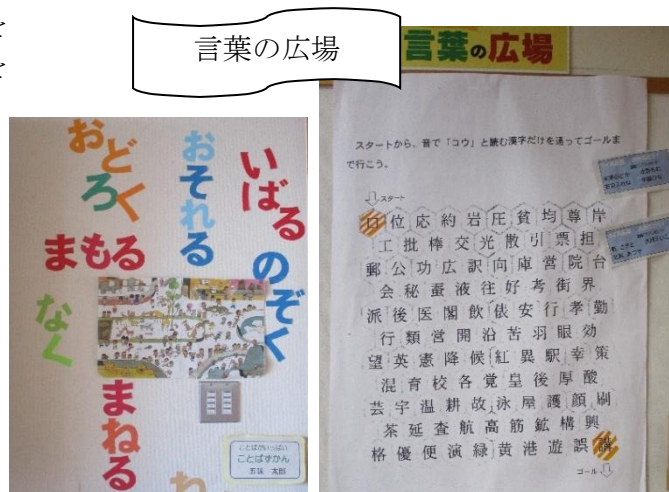 言葉の広場
おどろく
おそれる
いばる
まもる
のぞく
なく
まねる
ことばがいっぱい
ことばずかん
五味 太郎
言葉の広場
スタートから、音で「コウ」と読む漢字だけを通ってゴールま
で行こう。
スタート
口位応約岩圧貧均尊岸
工批棒交光散引票担
郵公功広訳向庫営院台
会秘蚕液往好考街界
派後医閣飲俵安行孝勤
行類営開沿苦羽眼効
望英憲降候紅異駅幸策
混育校各覚皇後厚酸
芸宇温耕故泳屋護顔刷
茶延査航高筋鉱構興
格優便演緑黄港遊誤講
ゴール